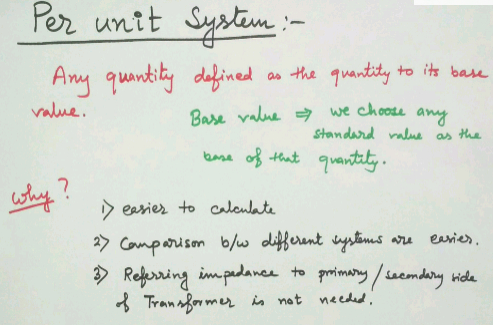 Per unit System :-
Any quantity defined as the quantity to its base
value.
Base value ⇒ we choose any
standard value as the
base of that quantity.
why?
1) easier to calculate
2) Comparison b/w different systems are easier.
3) Referring impedance to primary/secondary side
of Transformer is not needed.